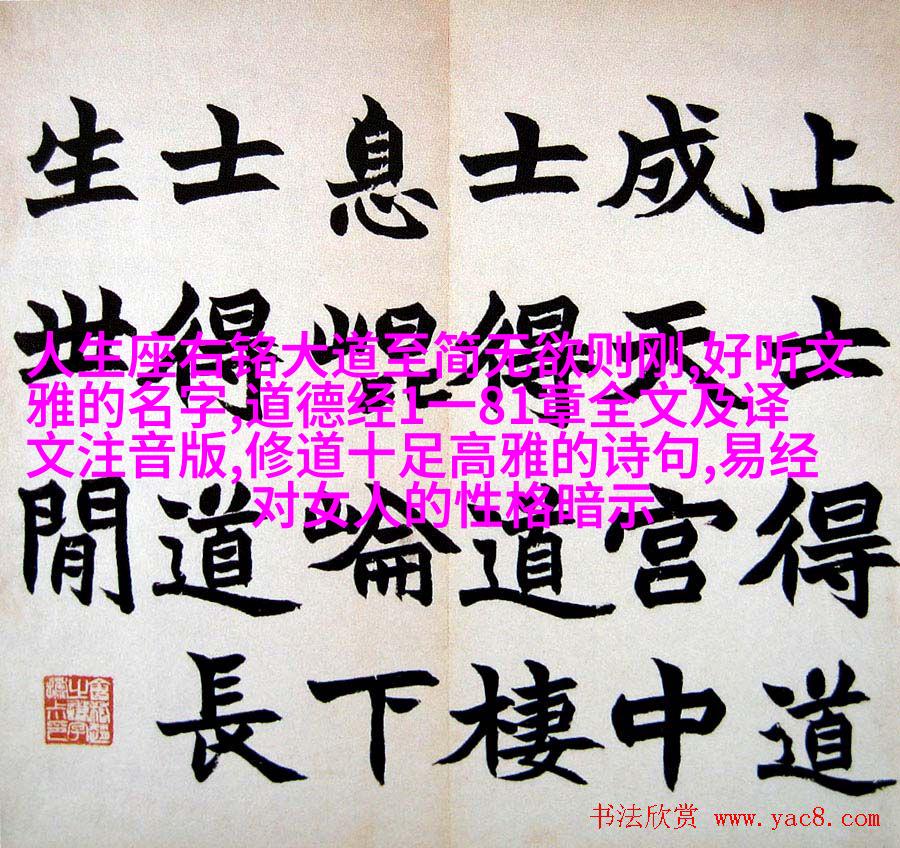 上士得道
成天宫中
士得道棲
息崐崘下
士得道長
生世閒
人生座右铭大道至简无欲则刚,好听文
雅的名字,道德经1一81章全文及译
文注音版,修道十足高雅的诗句,易经
对女人的性格暗示
书法欣赏 www.yac8.com